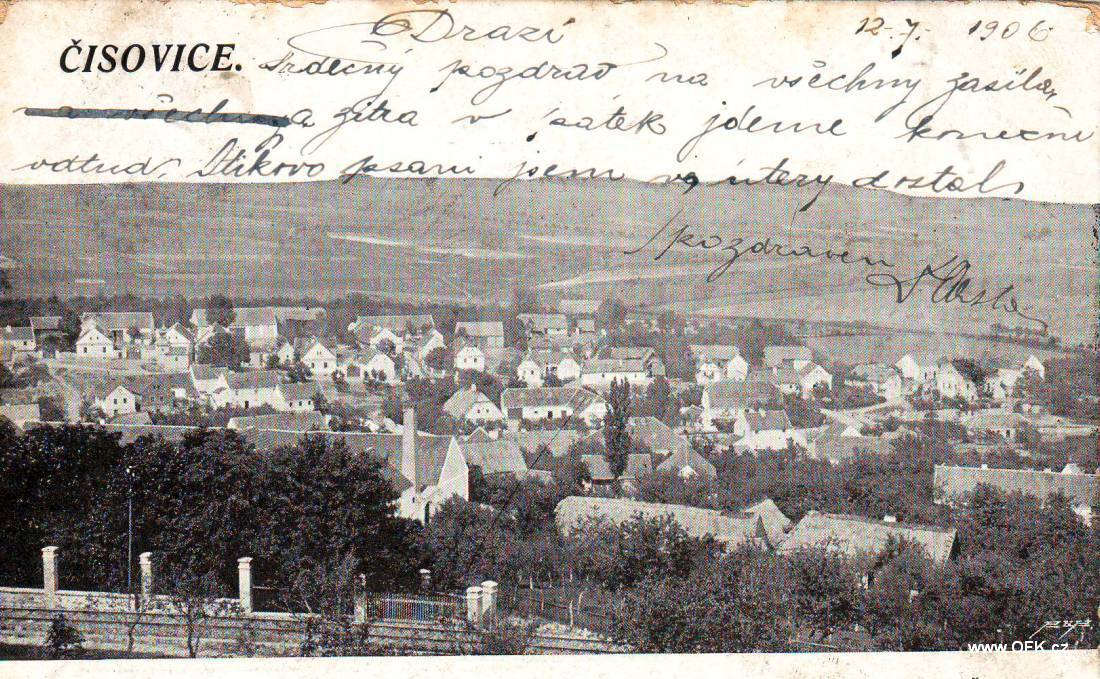 ČISOVICE.
Drazí 12-7. 1906
Srdečný pozdrav na všechny zasílá
a zítra v sátek jdeme konečni
vdtud. psani jsem v úterý dostal
pozdraven
www.OFK.cz